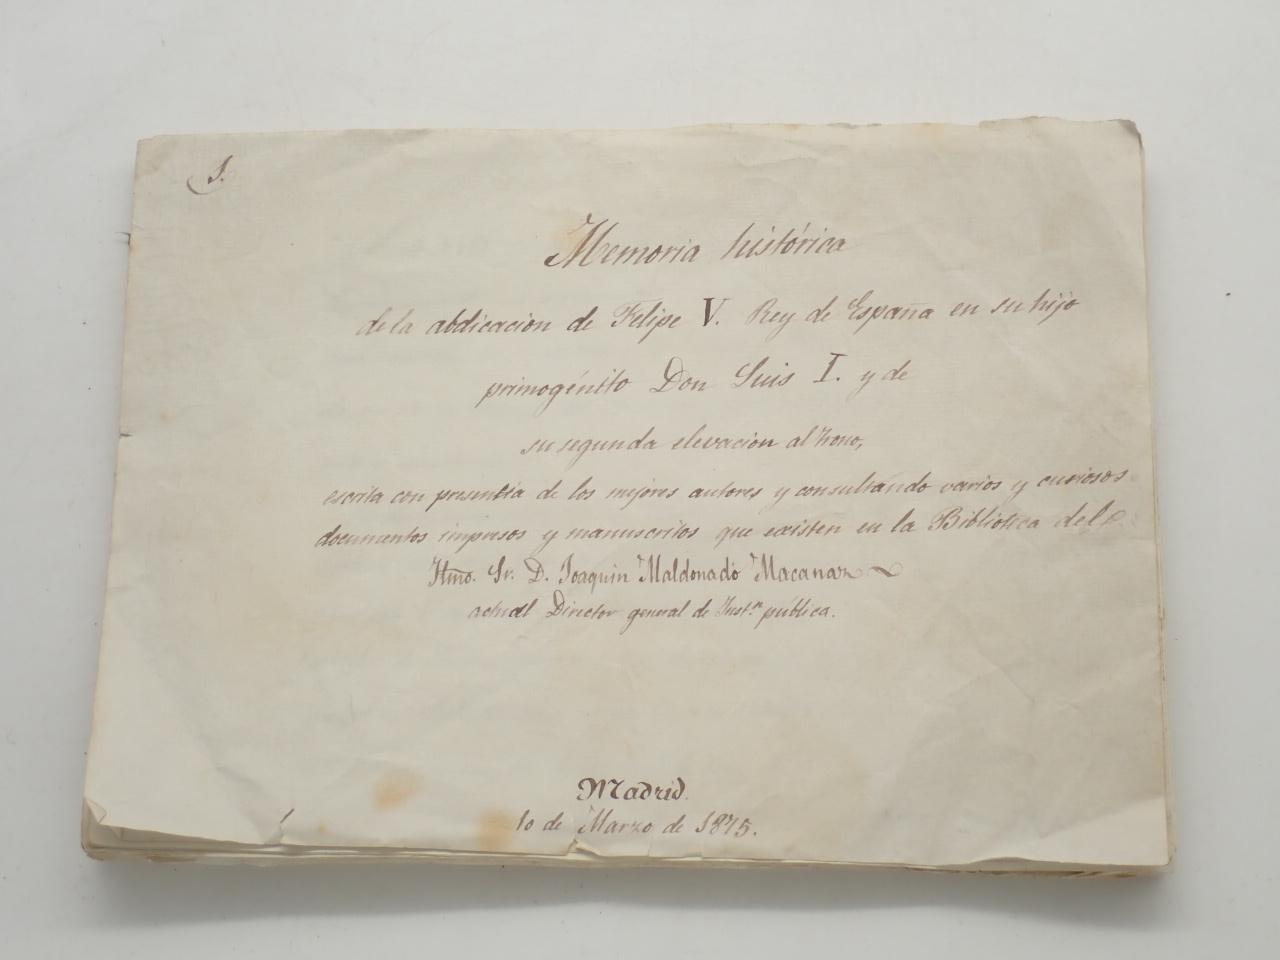 1.
Memoria histórica
de la abdicacion de Felipe V. Rey de España en su hijo
primogénito Don Luis I. y de
su segunda elevacion al trono,
escrita con presentia de los mejores autores y consultando varios y curiosos
documentos impresos y manuscritos que existen en la Biblioteca del
Iltmo. Sr. D. Joaquin Maldonado Macanaz
actual Director general de Instn pública.
Madrid.
10 de Marzo de 1875.